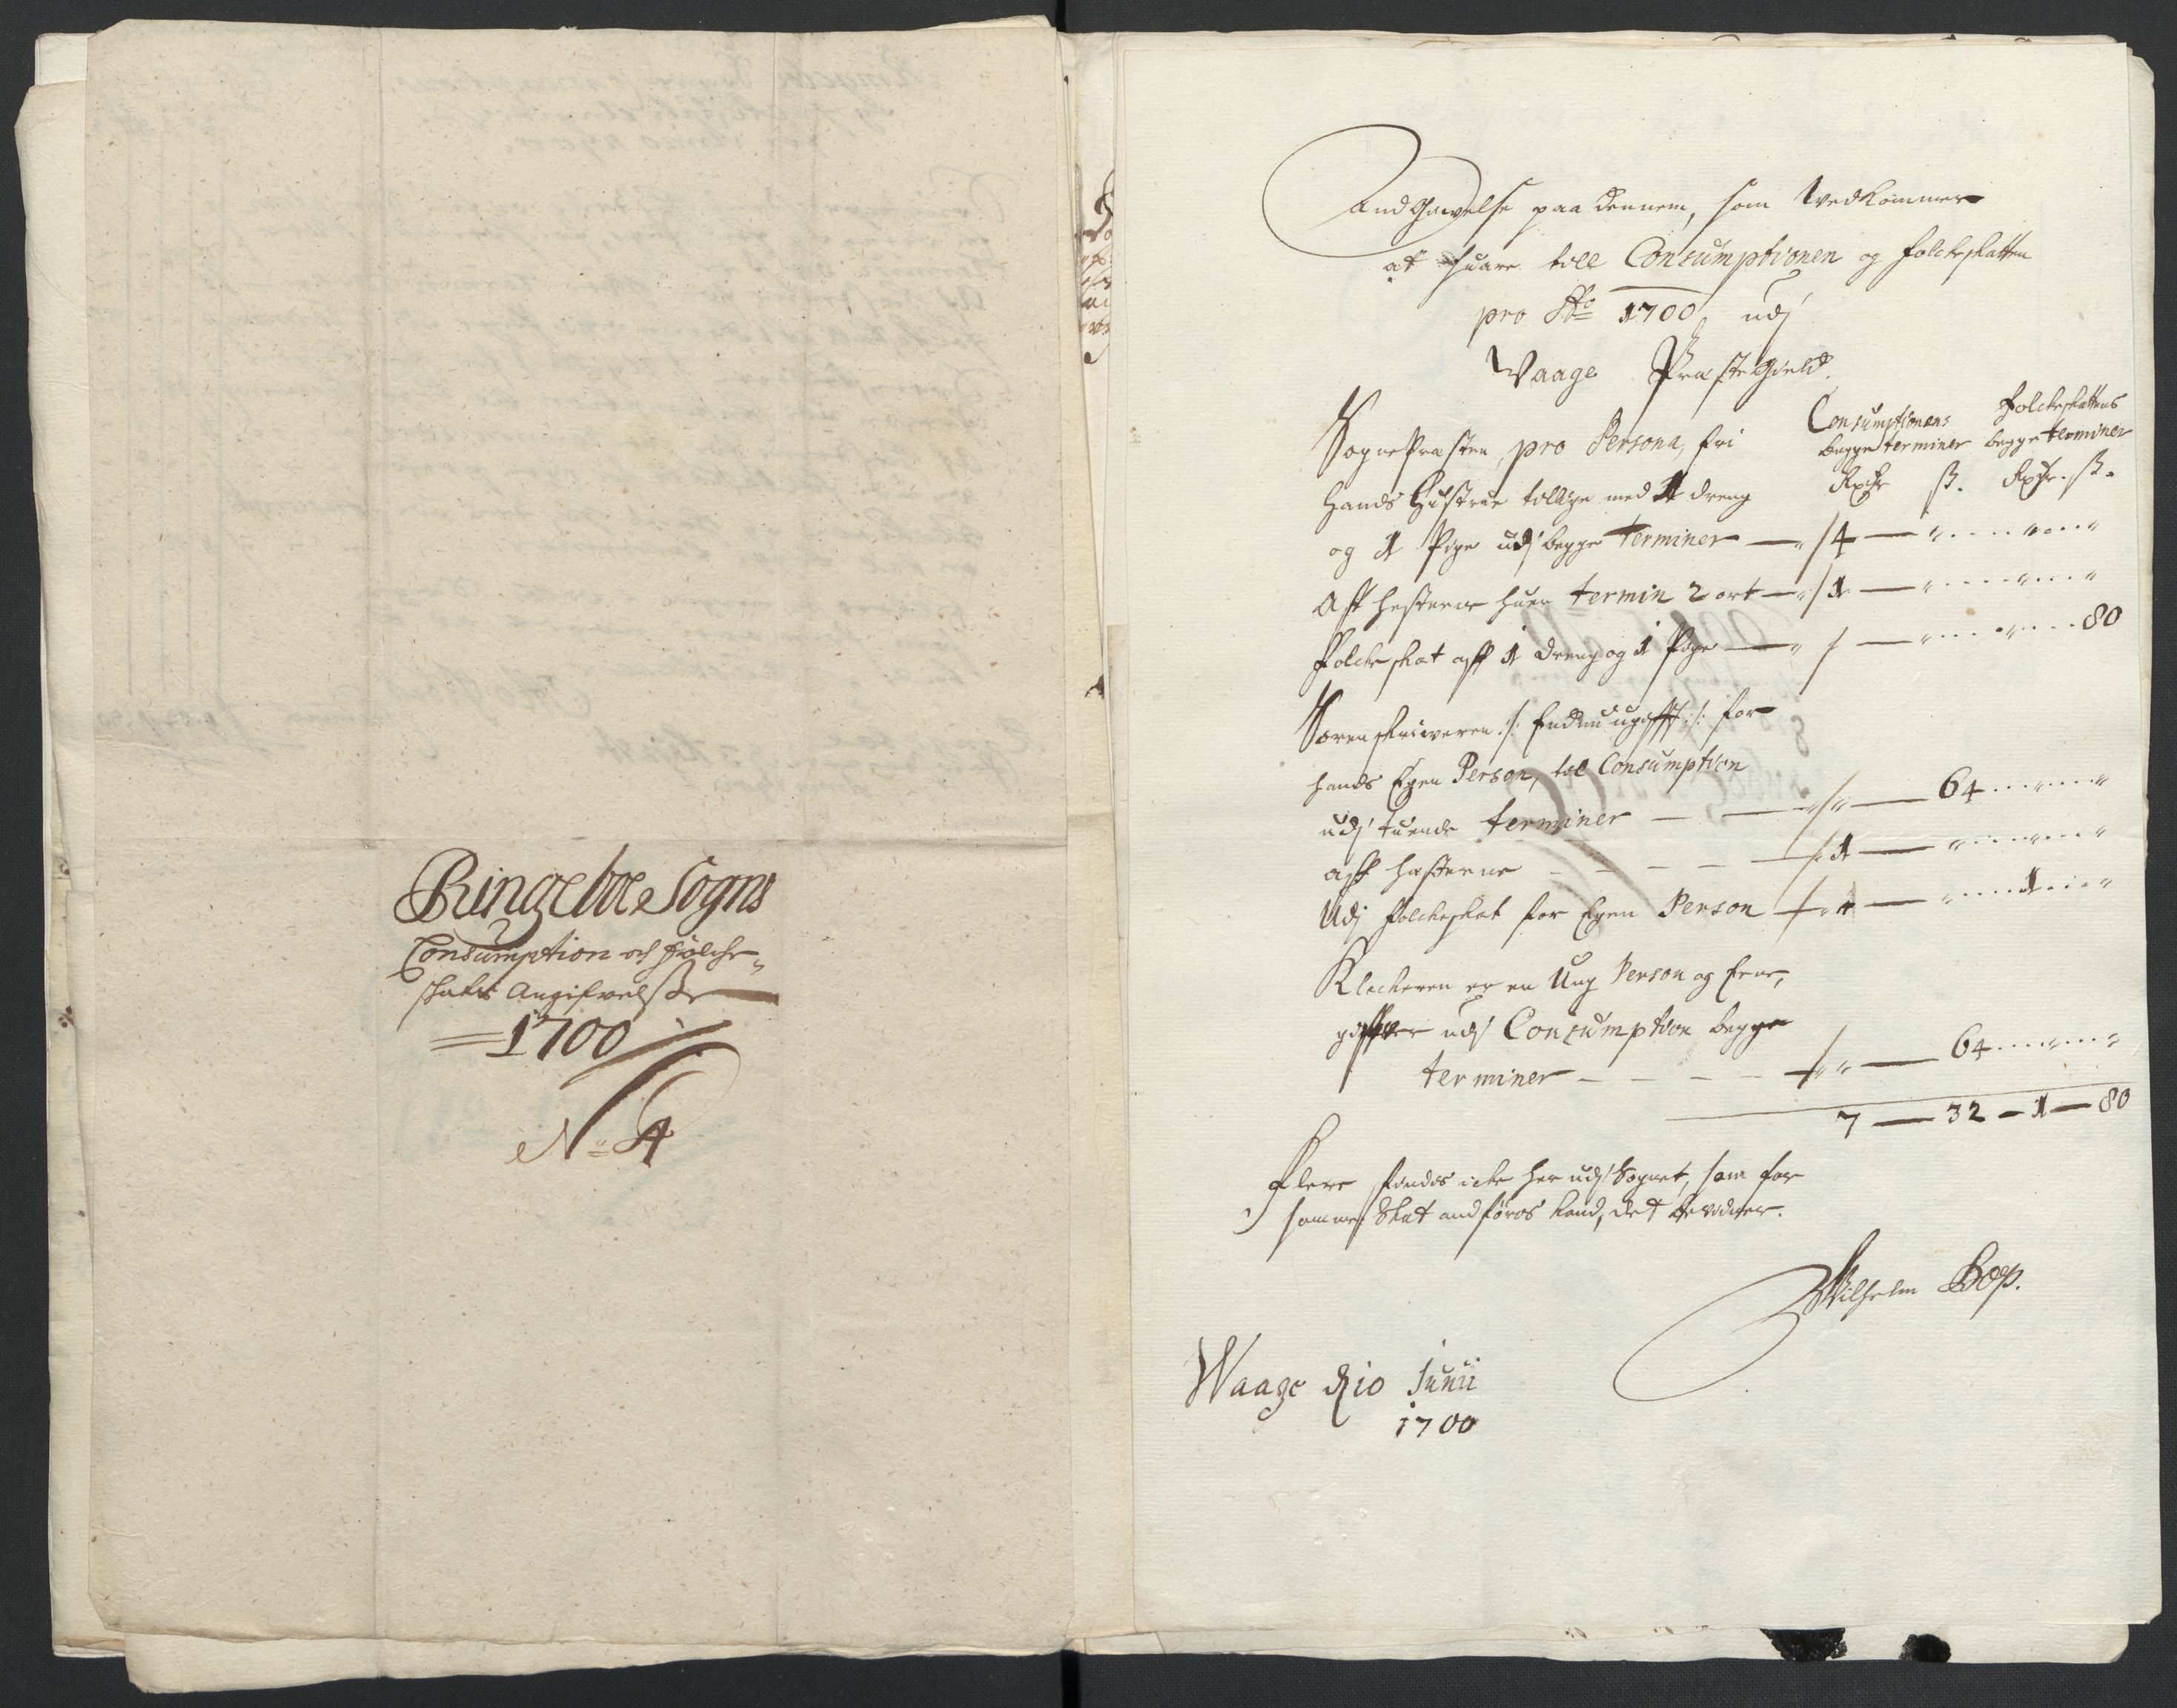 Ringeboe Sogns
Consumption och Folche-
skatts Angifvelsse
1700
No 4
Andgivelse paa dennem, som vedkommer
at suare till Consumptionen og folcheskatten
pro Ao 1700, udj
Vaage Præstegield.
Consumptionens folcheskattens
begge terminer begge terminer
SognePræsten, pro Persona, fri
hands Hustrue tillige med 1 dreng Rdr ß. Rdr. ß.
og 1 Pige udj begge terminer — 4 — " " "
Aff hesterne huer termin 2 ort — 1 — " " "
folcheskat aff 1 dreng og 1 Pige — " — " " 80
Sorenskriveren /: Endnu ugifft :/ for
hands Egen Person, til Consumption
udj tuende terminer — " — 64 " "
aff hæsterne — 1 — " " "
Udj folcheskat for Egen Person — " — " 1 "
Klocheren er en Ung Person og
udj Consumption begge
terminer — " — 64 " "
7 — 32 — 1 — 80
Flere findes iche her udj Sognet, som for
samme Skat andføres kand, det bevidner.
Wilhelm Bop.
Waage d 10 Junii
1700